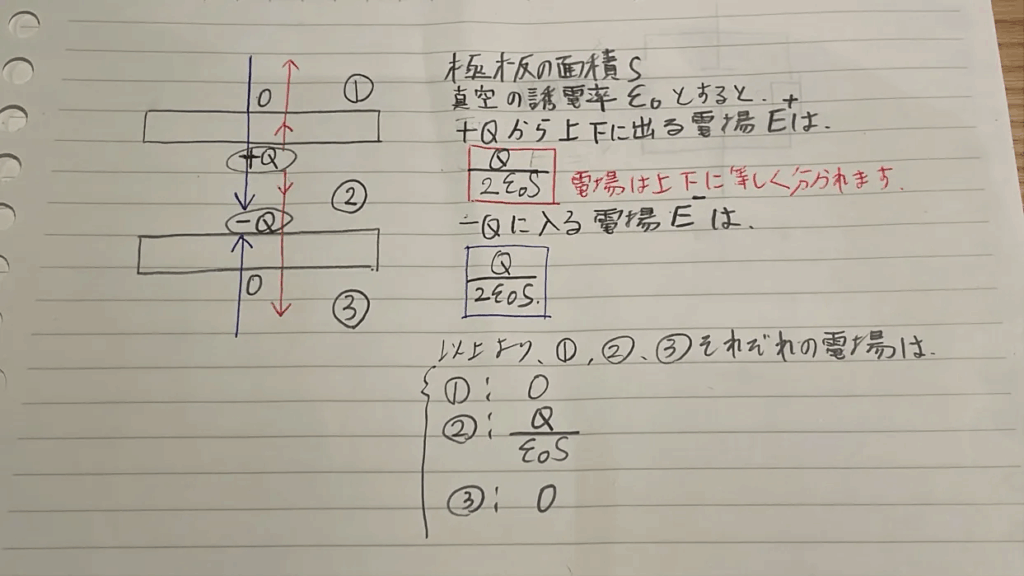 0 ①
+Q
②
-Q
0
③
極板の面積 S
真空の誘電率 ε₀ とすると、
+Qから上下に出る電場 E⁺は、
Q/2ε₀S 電場は上下に等しく分かれます。
-Qに入る電場 E⁻は、
Q/2ε₀S.
以上より、①,②、③それぞれの電場は、
①: 0
②: Q/ε₀S
③: 0